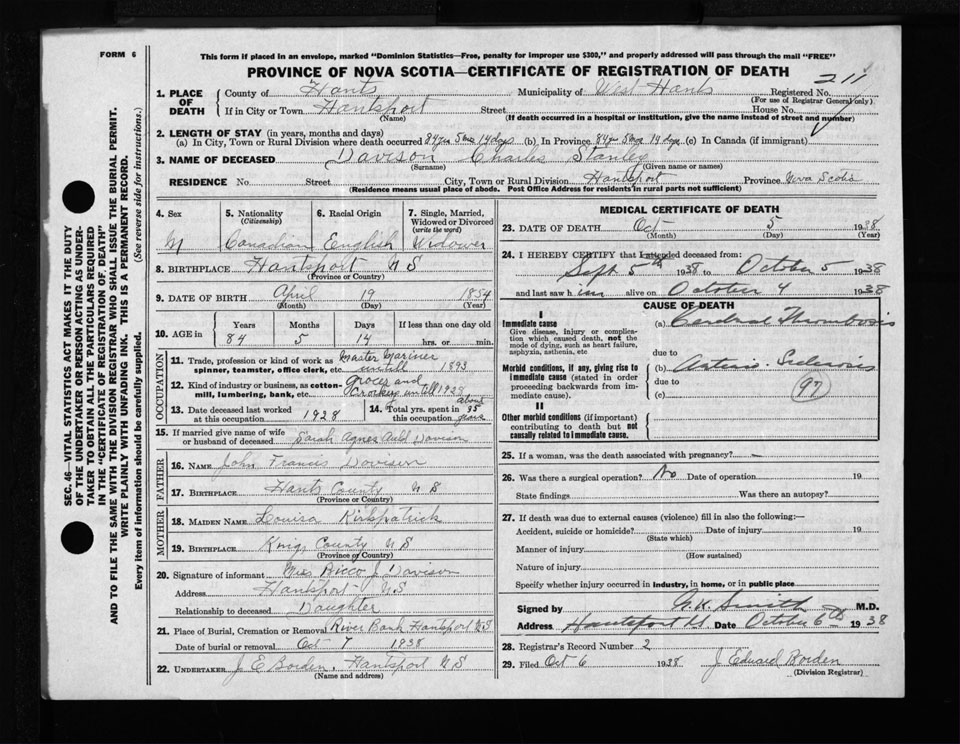 FORM 6
This form if placed in an envelope, marked "Dominion Statistics—Free, penalty for improper use $300," and properly addressed will pass through the mail "FREE"
PROVINCE OF NOVA SCOTIA—CERTIFICATE OF REGISTRATION OF DEATH
211
1. PLACE OF DEATH
County of Hants Municipality of West Hants Registered No.
(For use of Registrar General only)
If in City or Town Hantsport Street House No.
(Name) (If death occurred in a hospital or institution, give the name instead of street and number)
2. LENGTH OF STAY (in years, months and days)
(a) In City, Town or Rural Division where death occurred 84 yrs 5 mos 14 days (b) In Province 84 yrs 5 mos 14 days (c) In Canada (if immigrant)
3. NAME OF DECEASED Davison Charles Stanley
(Surname) (Given name or names)
RESIDENCE No. Street City, Town or Rural Division Hantsport Province Nova Scotia
(Residence means usual place of abode. Post Office Address for residents in rural parts not sufficient)
SEC. 46—VITAL STATISTICS ACT MAKES IT THE DUTY
OF THE UNDERTAKER OR PERSON ACTING AS UNDER-
TAKER TO OBTAIN ALL THE PARTICULARS REQUIRED
IN THE "CERTIFICATE OF REGISTRATION OF DEATH,"
AND TO FILE THE SAME WITH THE DIVISION REGISTRAR WHO SHALL ISSUE THE BURIAL PERMIT.
WRITE PLAINLY WITH UNFADING INK. THIS IS A PERMANENT RECORD.
Every item of information should be carefully supplied. (See reverse side for instructions.)
4. Sex M
5. Nationality (Citizenship) Canadian
6. Racial Origin English
7. Single, Married, Widowed or Divorced (write the word) Widower
8. BIRTHPLACE Hantsport N S
(Province or Country)
9. DATE OF BIRTH April 19 1854
(Month) (Day) (Year)
10. AGE in Years Months Days If less than one day old
84 5 14 hrs. or min.
OCCUPATION
11. Trade, profession or kind of work as spinner, teamster, office clerk, etc. Master Mariner untill 1893
12. Kind of industry or business, as cotton-mill, lumbering, bank, etc. Grocer and Crockery untill 1928
13. Date deceased last worked at this occupation 1928
14. Total yrs. spent in this occupation about 35 years
15. If married give name of wife or husband of deceased Sarah Agnes Auld Davison
FATHER
16. NAME John Francis Davison
17. BIRTHPLACE Hants County N S
(Province or Country)
MOTHER
18. MAIDEN NAME Louisa Kirkpatrick
19. BIRTHPLACE Kings County N S
(Province or Country)
20. Signature of informant J Davison
Address Hantsport N S
Relationship to deceased Daughter
21. Place of Burial, Cremation or Removal River Bank Hantsport N S
Date of burial or removal Oct 7 1938
22. UNDERTAKER J E Borden, Hantsport N S
(Name and address)
MEDICAL CERTIFICATE OF DEATH
23. DATE OF DEATH Oct 5 1938
(Month) (Day) (Year)
24. I HEREBY CERTIFY that I attended deceased from:
Sept 5th 1938 to October 5 1938
and last saw him alive on October 4 1938
CAUSE OF DEATH
I
Immediate cause
Give disease, injury or complication which caused death, not the mode of dying, such as heart failure, asphyxia, asthenia, etc
(a) Cerebral Thrombosis
due to
Morbid conditions, if any, giving rise to immediate cause (stated in order proceeding backwards from immediate cause).
(b) Arterio Sclerosis
due to
(c)
(97)
II
Other morbid conditions (if important) contributing to death but not causally related to immediate cause.
25. If a woman, was the death associated with pregnancy? —
26. Was there a surgical operation? No Date of operation 19
State findings Was there an autopsy?
27. If death was due to external causes (violence) fill in also the following:—
Accident, suicide or homicide? Date of injury 19
(State which)
Manner of injury
(How sustained)
Nature of injury
Specify whether injury occurred in industry, in home, or in public place
Signed by G. K. Smith M.D.
Address Hantsport N.S. Date October 6th 1938
28. Registrar's Record Number 2
29. Filed Oct 6 1938 J Edward Borden
(Division Registrar)